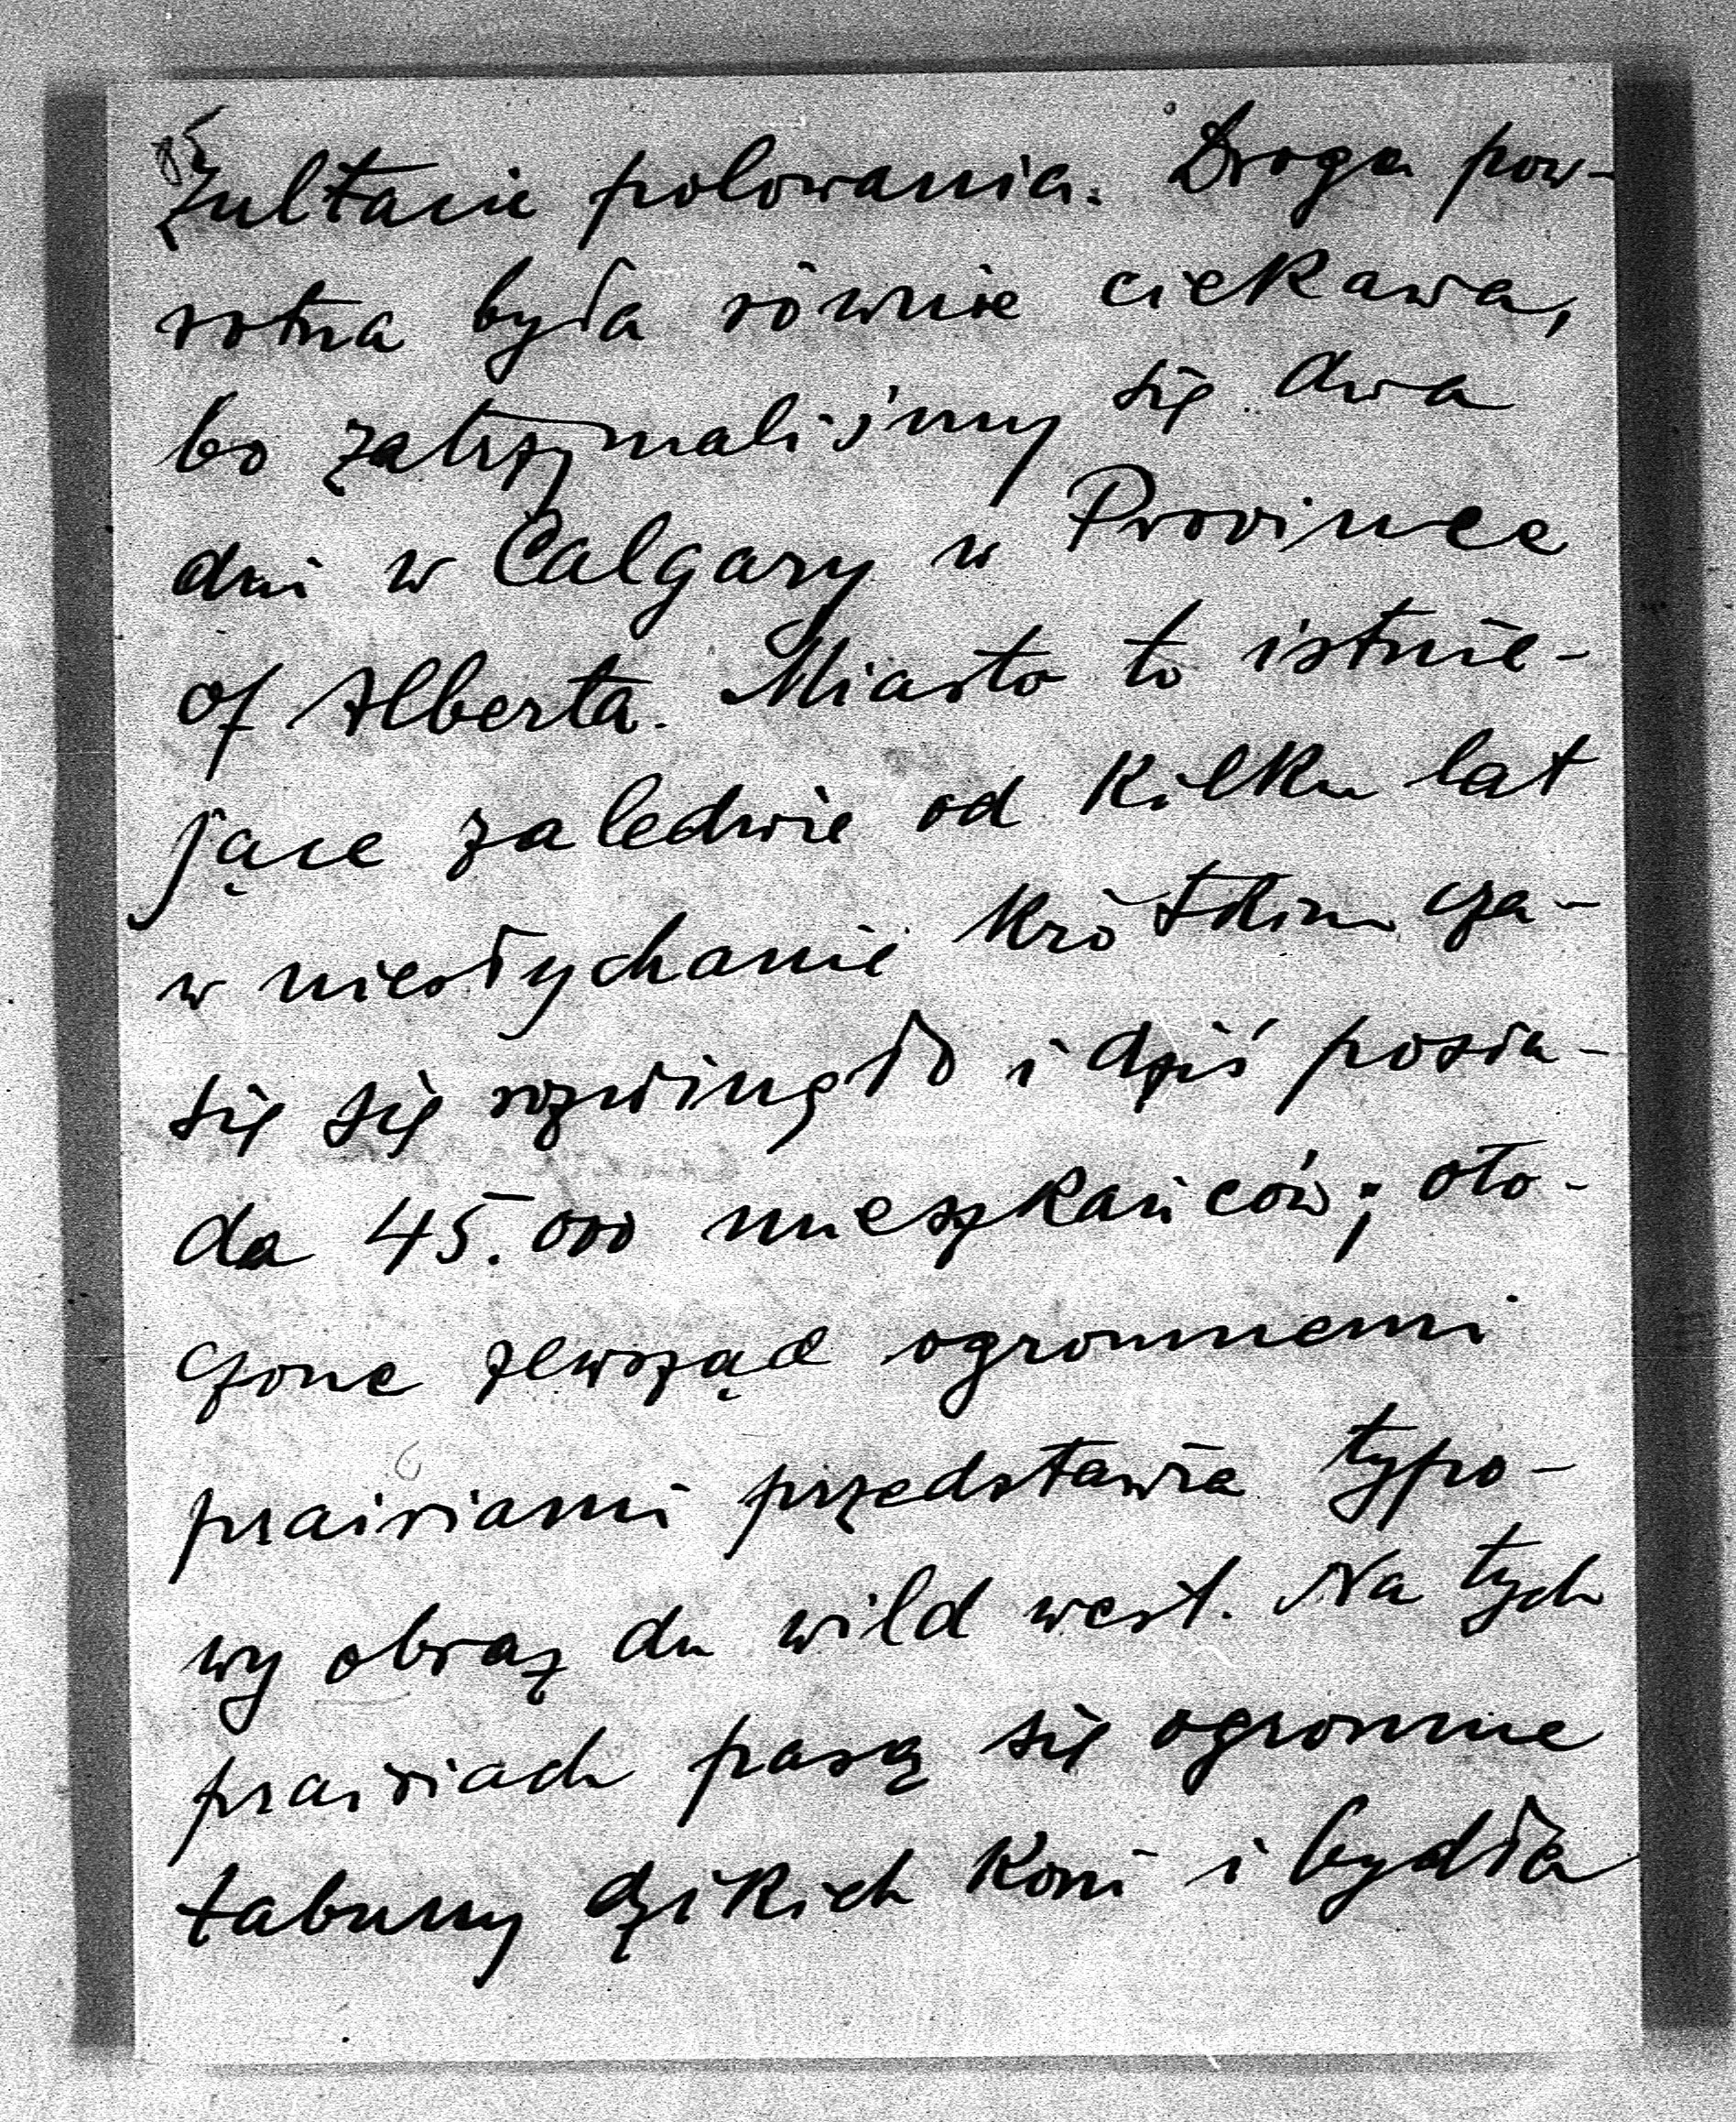 zultacie polowania. Droga pow-
rotna była równie ciekawa,
bo zatrzymaliśmy się dwa
dni w Calgary w Province
of Alberta. Miasto to istnie-
jące zaledwie od kilku lat
w niesłychanie krótkim cza-
sie się rozwinęło i dziś posia-
da 45.000 mieszkańców; oto-
czone zewsząd ogromnemi
prairiami przedstawia typo-
wy obraz du wild west. Na tych
prairiach pasą się ogromne
tabuny dzikich koni i bydła